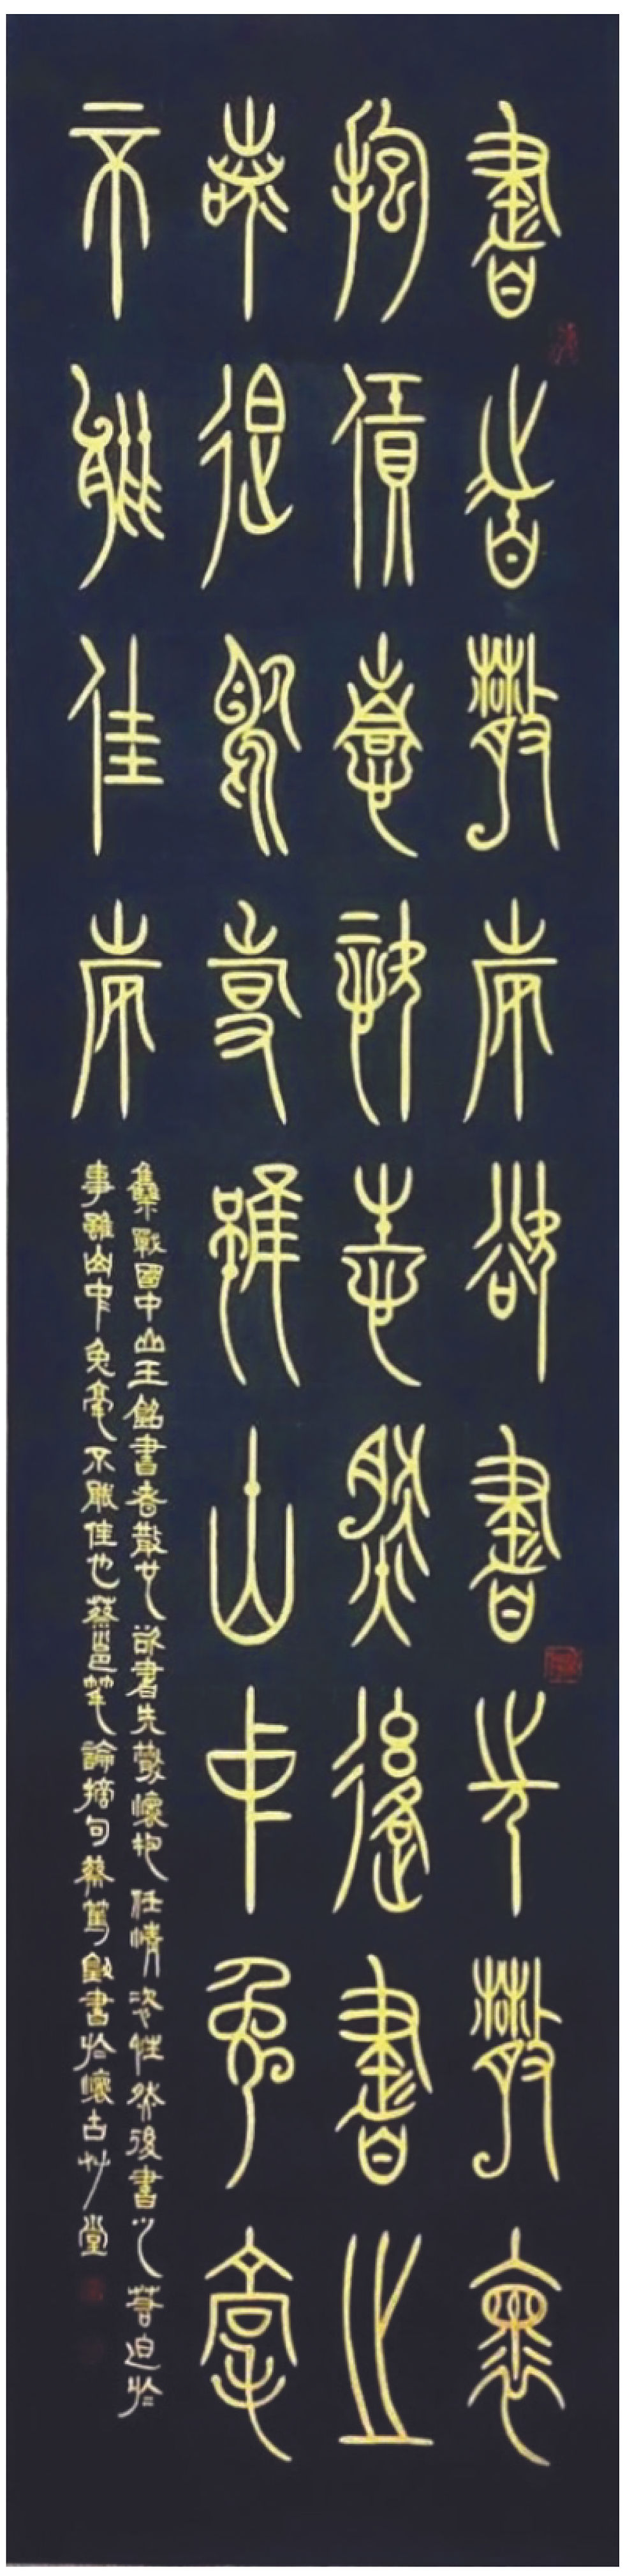 書者散也欲書先散懷
抱任情恣性然後書之
若迫於事雖山中兔毫
不能佳也
集戰國中山王銘書者散也欲書先散懷抱任情恣性然後書之若迫於
事雖山中兔毫不能佳也蔡邕筆論摘句蔡書於懷古艸堂